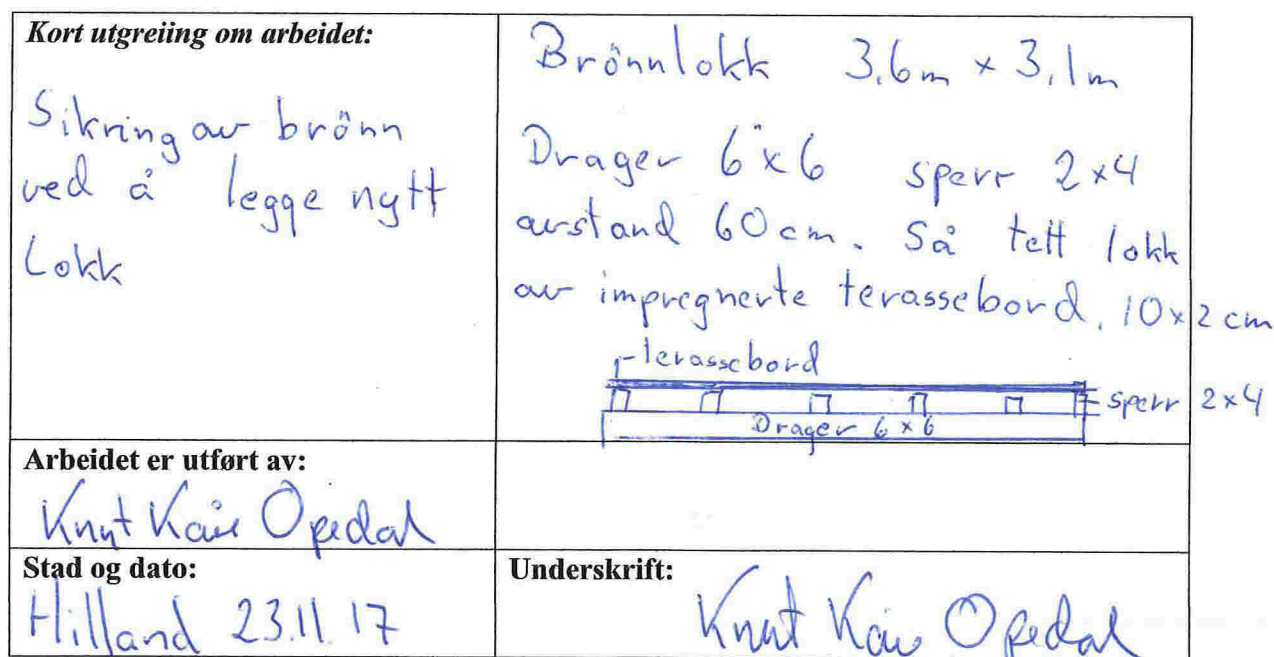 Kort utgreiing om arbeidet:
Sikring av brönn
ved å legge nytt
lokk
Brönnlokk 3,6m x 3,1m
Drager 6"x6 sperr 2x4
avstand 60cm. Så tett lokk
av impregnerte terassebord. 10x2cm
terassebord
sperr 2x4
Drager 6x6
Arbeidet er utført av:
Knut Kåre Opedal
Stad og dato:
Hilland 23.11.17
Underskrift:
Knut Kåre Opedal